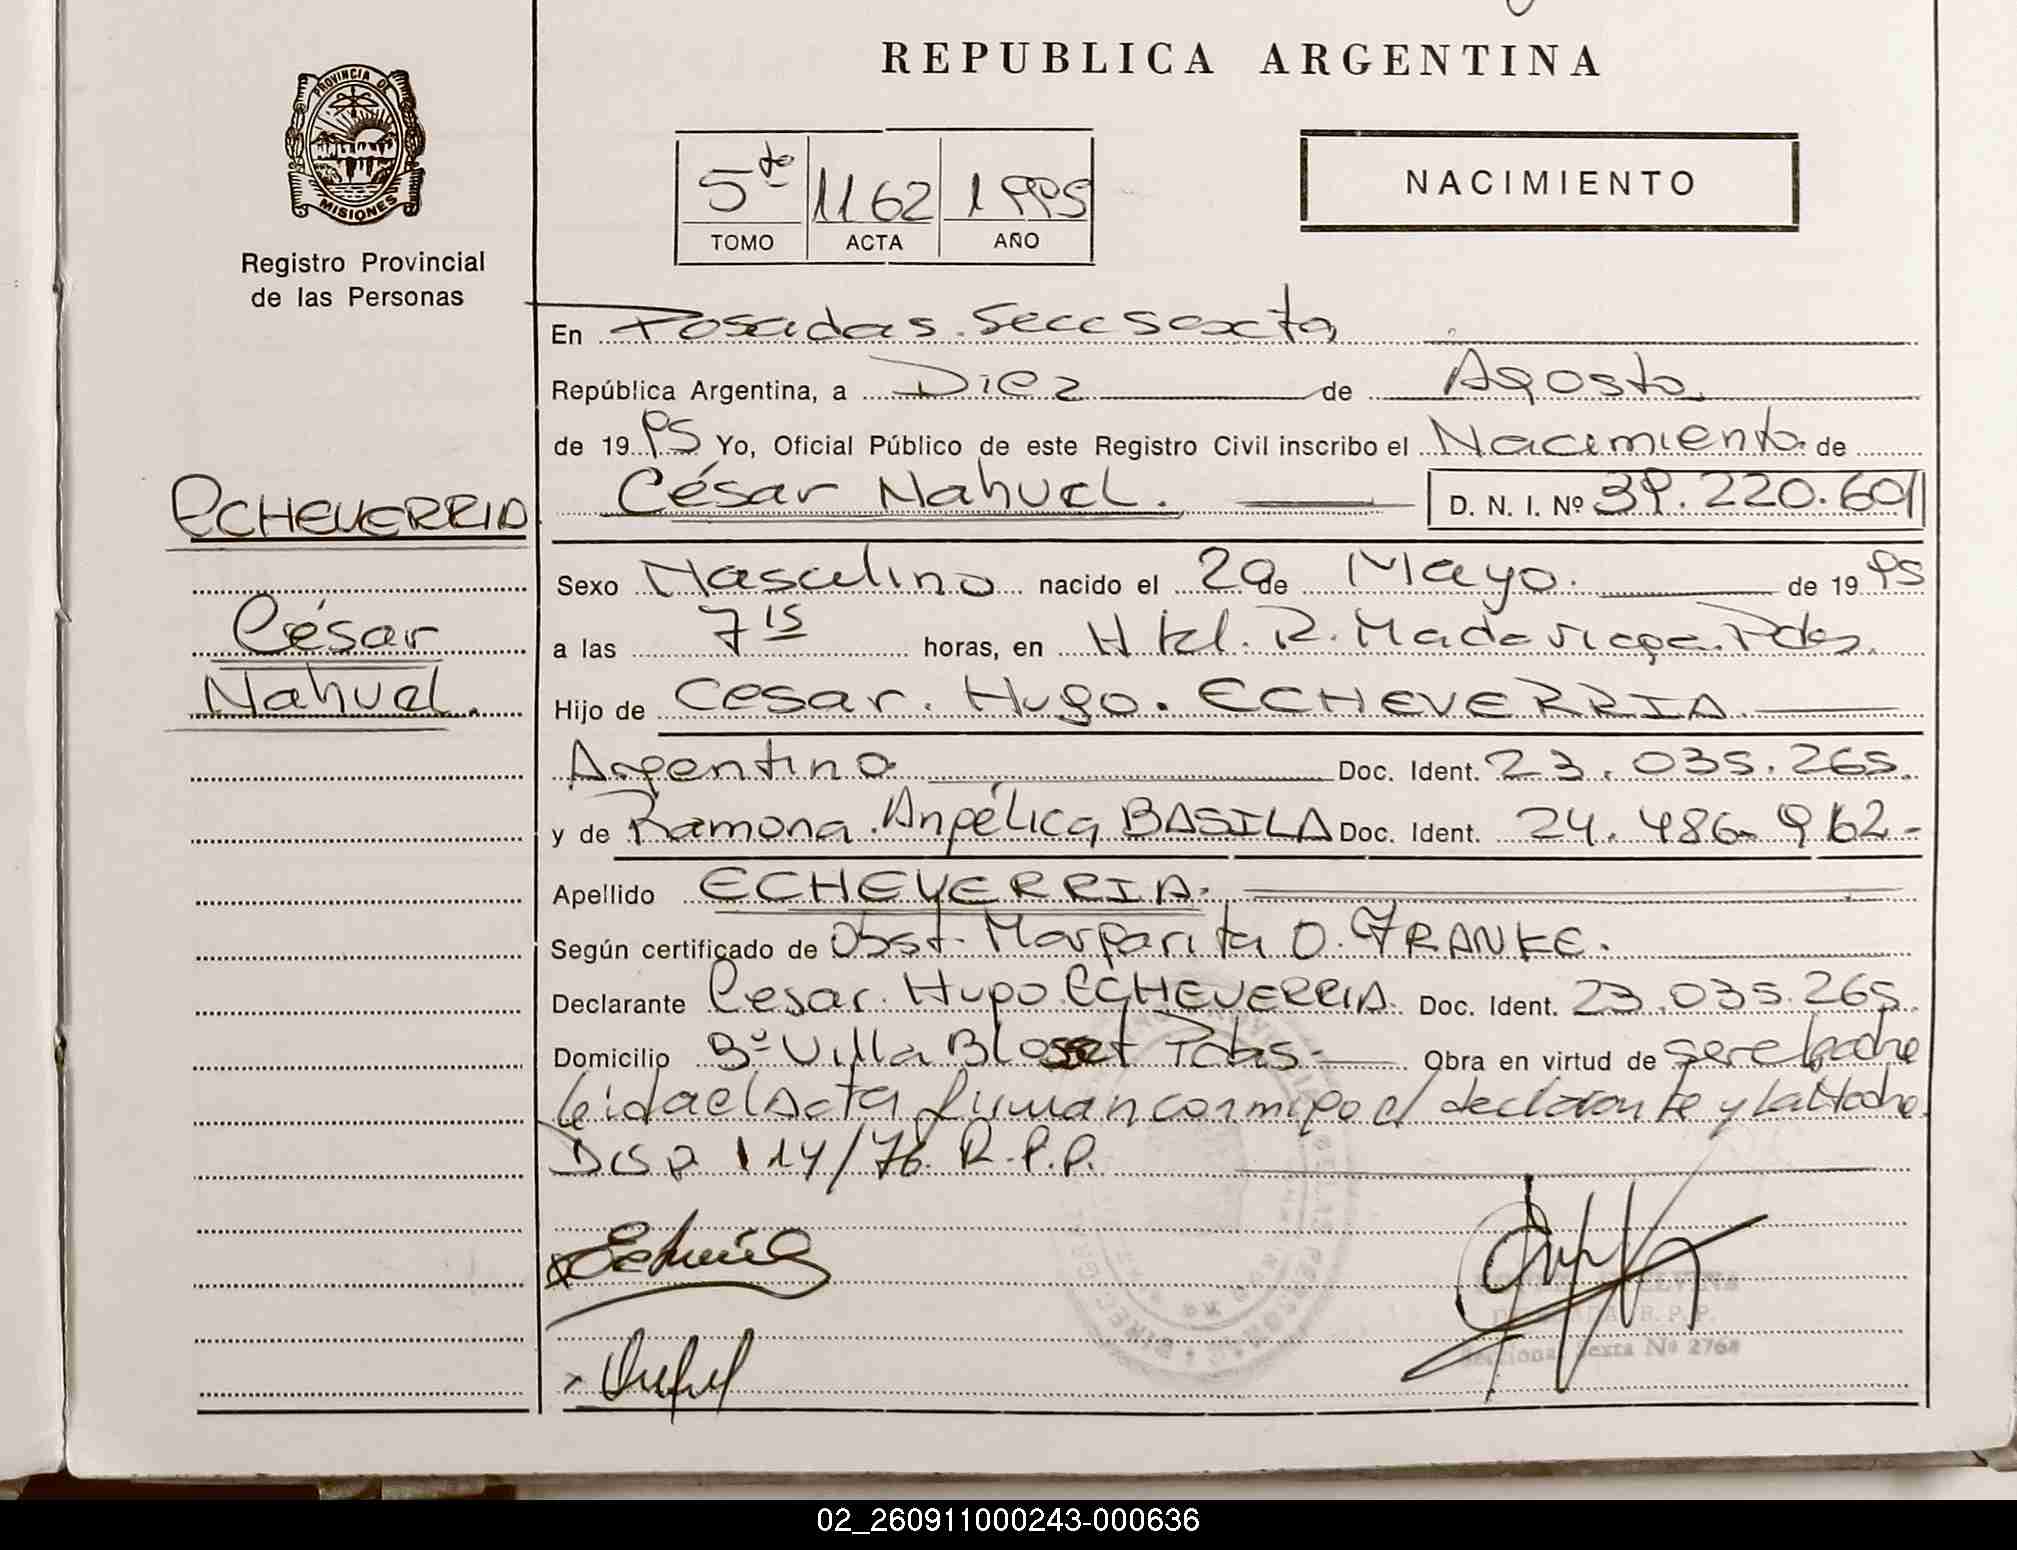 REPUBLICA ARGENTINA
PROVINCIA DE
MISIONES
Registro Provincial
de las Personas
5to 1162 1995
TOMO ACTA AÑO
NACIMIENTO
En Posadas. Secc Sexta
República Argentina, a Diez de Agosto
de 19 95 Yo, Oficial Público de este Registro Civil inscribo el Nacimiento de
ECHEVERRIA
César Nahuel. D. N. I. Nº 39.220.601
Sexo Masculino nacido el 20 de Mayo. de 19 95
César
Nahuel.
a las 7 15 horas, en Htal. R. Madariaga. Pdas.
Hijo de Cesar. Hugo. ECHEVERRIA
Argentino Doc. Ident. 23.035.265.
y de Ramona. Angélica BASILA Doc. Ident. 24.486.962-
Apellido ECHEVERRIA.
Según certificado de Obst. Margarita O. FRANKE.
Declarante Cesar. Hugo ECHEVERRIA. Doc. Ident. 23.035.265.
Domicilio Bº Villa Blosset Pdas- Obra en virtud de
leida el Acta firman conmigo el declarante y la Madre.
Disp. 114/76. R.P.P.
R. P. P.
Seccional Sexta Nº 2768
02_260911000243-000636